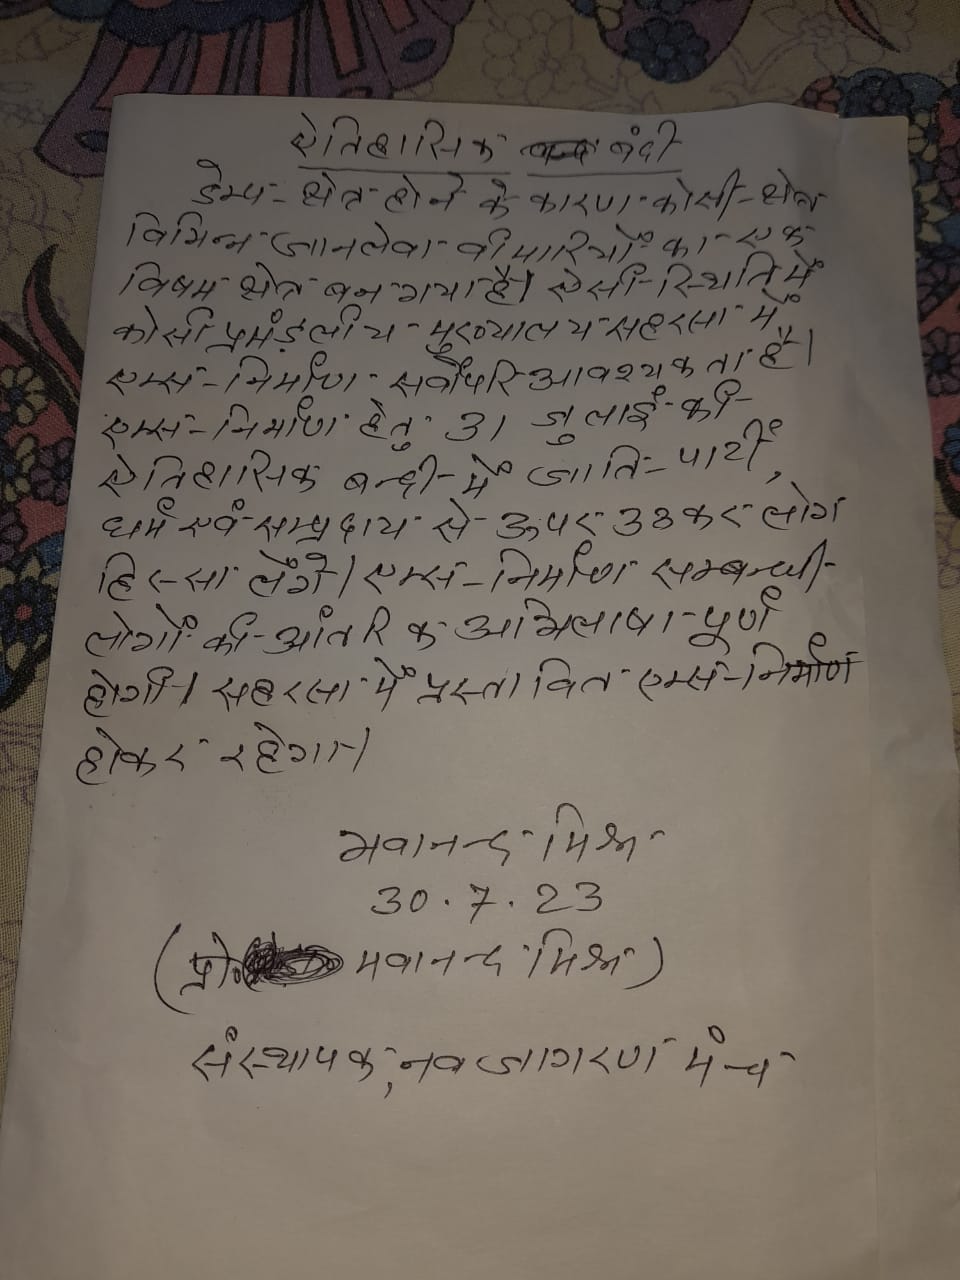 ऐतिहासिक बंदी
डेम्प- क्षेत्र होने के कारण कोसी-क्षेत्र
विभिन्न जानलेवा बीमारियों का एक
विषम क्षेत्र बन गया है। ऐसी स्थिति में
कोसी प्रमंडलीय मुख्यालय सहरसा में
एम्स-निर्माण सर्वोपरि आवश्यकता है।
एम्स-निर्माण हेतु 31 जुलाई की
ऐतिहासिक बन्दी में जाति-पार्टी,
धर्म एवं सम्प्रदाय से ऊपर उठकर लोग
हिस्सा लेंगे। एम्स-निर्माण सम्बन्धी
लोगों की आंतरिक अभिलाषा पूर्ण
होगी। सहरसा में प्रस्तावित एम्स-निर्माण
होकर रहेगा।
भवानन्द मिश्र
30.7.23
(प्रो. भवानन्द मिश्र)
संस्थापक, नव जागरण मंच